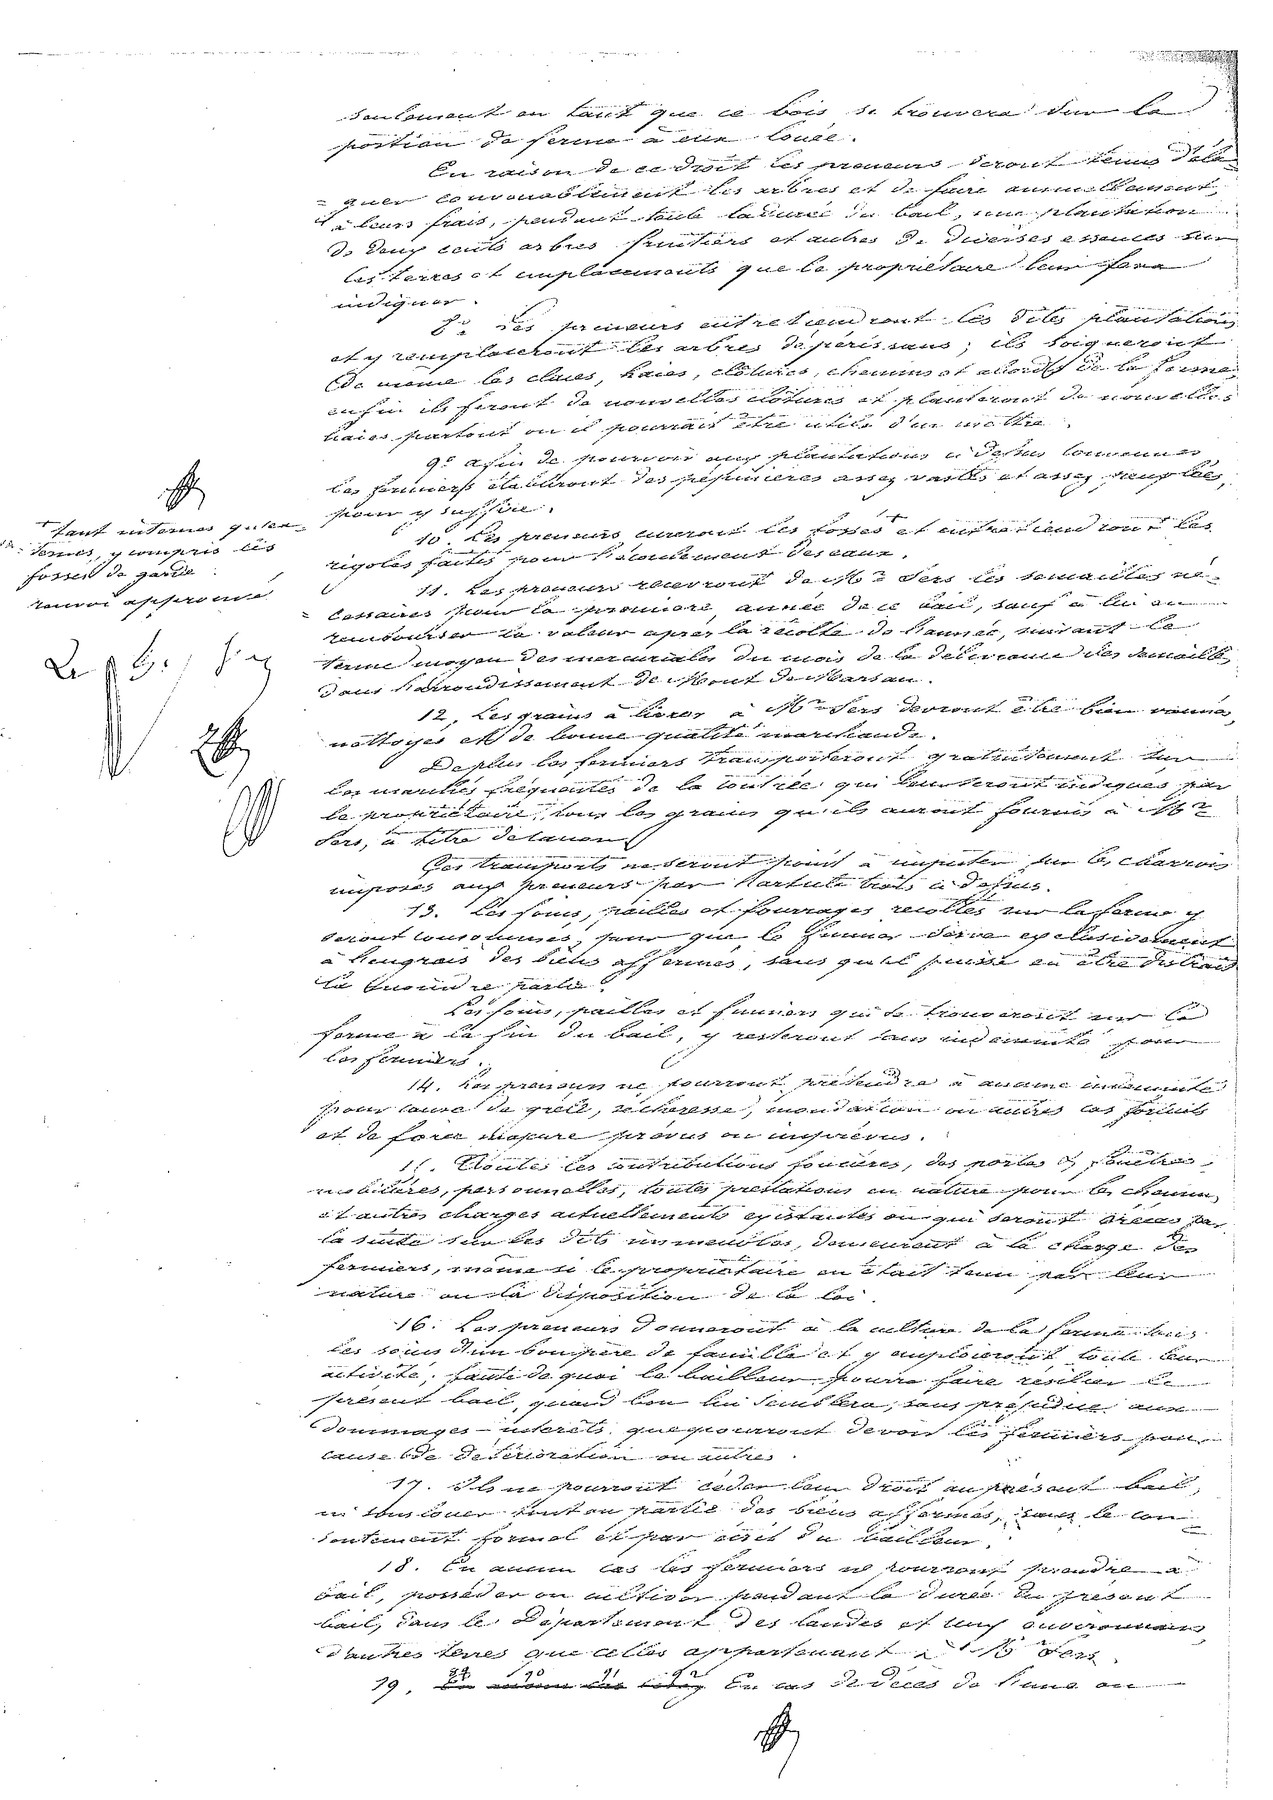 seulement en tant que ce bois se trouvera sur la
portion de ferme à eux louée.
En raison de ce droit les preneurs seront tenus d'éla-
=guer convenablement les arbres et de faire annuellement,
à leurs frais, pendant toute la durée du bail, une plantation
de deux cents arbres fruitiers et autres de diverses essences sur
les terres et emplacements que le propriétaire leur fera
indiquer.
8°. Les preneurs entretiendront les dites plantations
et y remplaceront les arbres dépérissans; ils soigneront
de même les claies, haies, clôtures, chemins et abords de la ferme,
enfin ils feront de nouvelles clôtures et planteront de nouvelles
haies partout où il pourrait être utile d'en mettre.
9° afin de pourvoir aux plantations ci dessus convenues,
les fermiers établiront des pépinières assez vastes et assez peuplées,
pour y suffire.
+ tant internes qu'ex-
=ternes, y compris les
fossés de garde.
renvoi approuvé
10. Les preneurs cureront les fossés + et entretiendront les
rigoles faites pour l'écoulement des eaux.
11. Les preneurs recevront de Mr Sers les semailles né-
=cessaires pour la première année de ce bail, sauf à lui en
rembourser la valeur après la récolte de l'année, suivant le
terme moyen des mercuriales du mois de la délivrance des semailles,
dans l'arrondissement de Mont de Marsan.
12. Les grains à livrer à Mr Sers devront être bien vannés,
nettoyés et de bonne qualité marchande.
De plus les fermiers transporteront gratuitement sur
les marchés fréquentés de la contrée qui leur seront indiqués par
le propriétaire, tous les grains qu'ils auront fournis à Mr
Sers, à titre de
Ces transports ne seront point à imputer sur les charrois
imposés aux preneurs par l'article trois ci dessus.
13. Les foins, pailles et fourrages récoltés sur la ferme y
seront consommés, pour que le fumier serve exclusivement
à l'engrais des biens affermés, sans qu'il puisse en être distrait
la moindre partie.
Les foins, pailles et fumiers qui se trouveront sur la
ferme à la fin du bail, y resteront sans indemnité pour
les fermiers.
14. Les preneurs ne pourront prétendre à aucune indemnité
pour cause de grêle, sécheresse, inondation ou autres cas fortuits
et de force majeure prévus ou imprévus.
15. Toutes les contributions foncières, des portes & fenêtres,
mobilières, personnelles, toutes prestations en nature pour les chemins,
et autres charges actuellement existantes ou qui seront créées par
la suite sur les dits immeubles, demeurent à la charge des
fermiers, même si le propriétaire en était tenu par leur
nature ou la disposition de la loi.
16. Les preneurs donneront à la culture de la ferme tous
les soins d'un bon père de famille et y emploieront toute leur
activité; faute de quoi le bailleur pourra faire résilier le
présent bail, quand bon lui semblera, sans préjudice aux
dommages-intérêts que pourront devoir les fermiers pour
cause de détérioration ou autres.
17. Ils ne pourront céder leur droit au présent bail,
ni sous louer tout ou partie des biens affermés, sans le con-
sentement formel et par écrit du bailleur.
18. En aucun cas les fermiers ne pourront prendre à
bail, posséder ou cultiver pendant la durée du présent
bail, dans le Département des landes et aux environs
d'autres terres que celles appartenant à Mr Sers.
19. En cas de décès de l'une ou